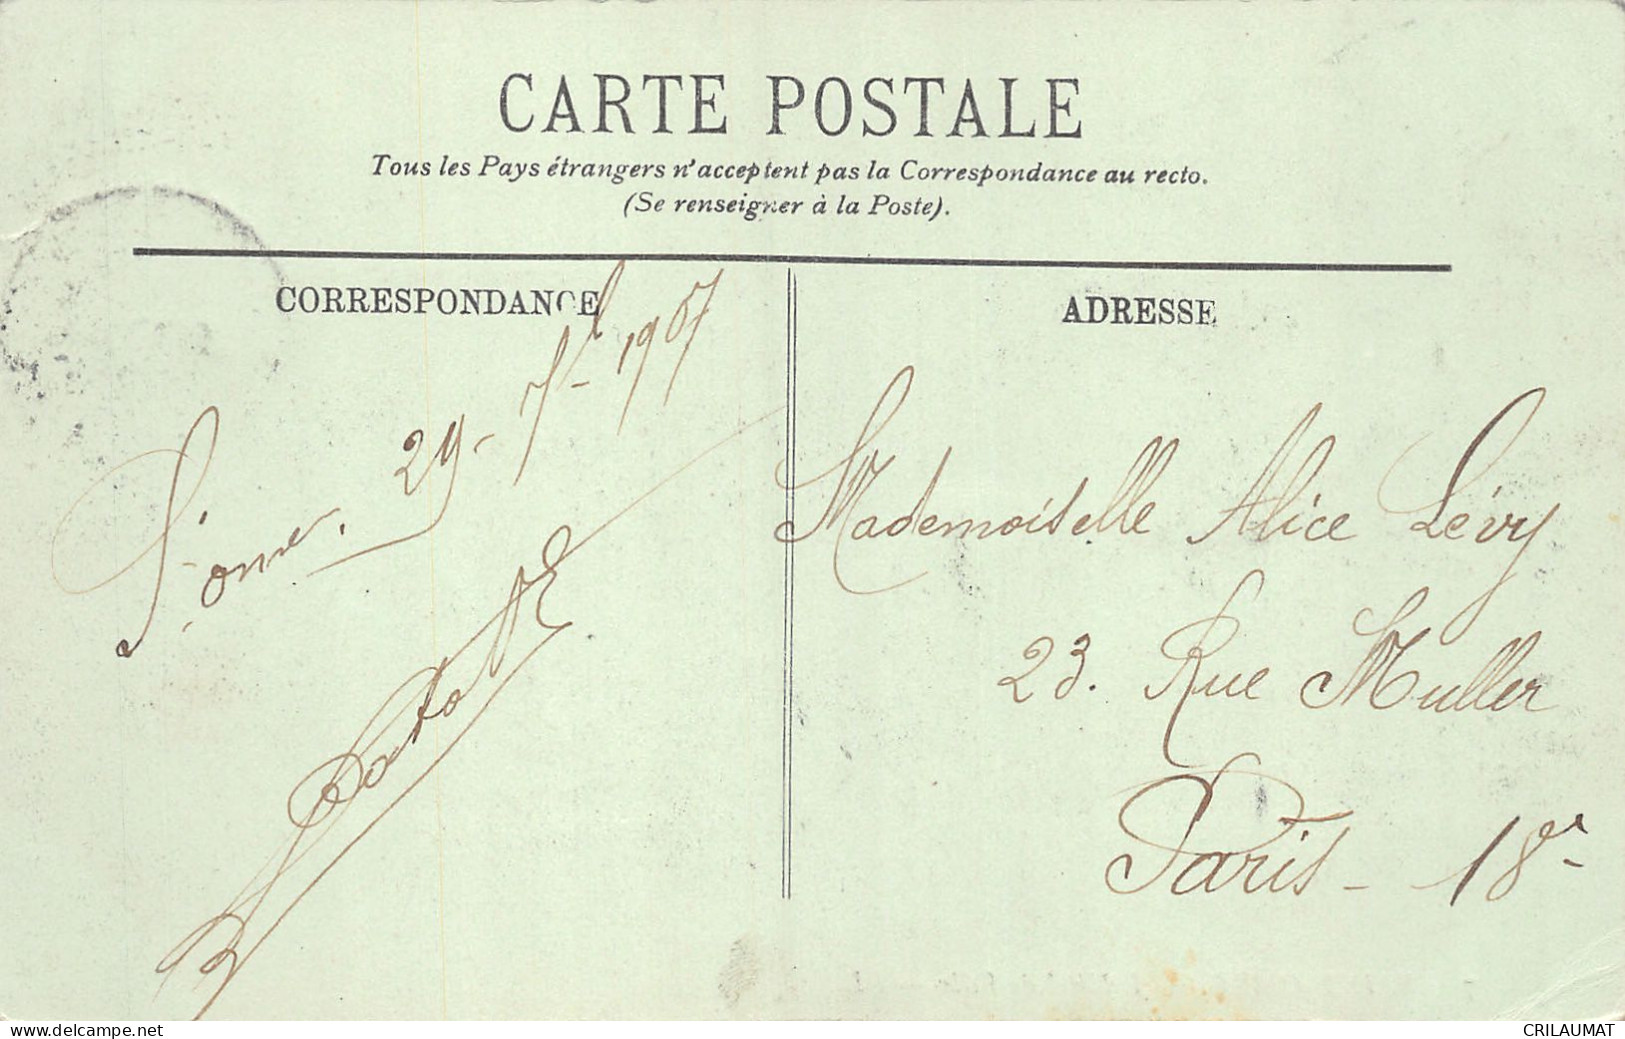 CARTE POSTALE
Tous les Pays étrangers n'acceptent pas la Correspondance au recto.
(Se renseigner à la Poste).
CORRESPONDANCE
29 - 7bl - 1907
ADRESSE
Mademoiselle Alice Lévy
23. Rue Muller
Paris - 18e
CRILAUMAT
www.delcampe.net